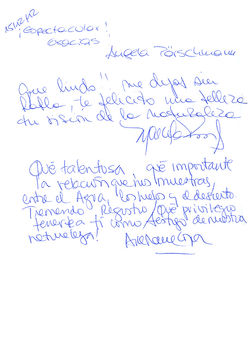 ¡Espectacular!
gracias
Angela
Que lindo!! me dejas sin
habla, te felicito una belleza
tu visión de la naturaleza
Qué talentosa qué importante
la relación que nos muestras,
entre el Agua, los hielos y el desierto
Tremendo Registro ¡Qué privilegio
tenerte a ti como testigo de nuestra
naturaleza!